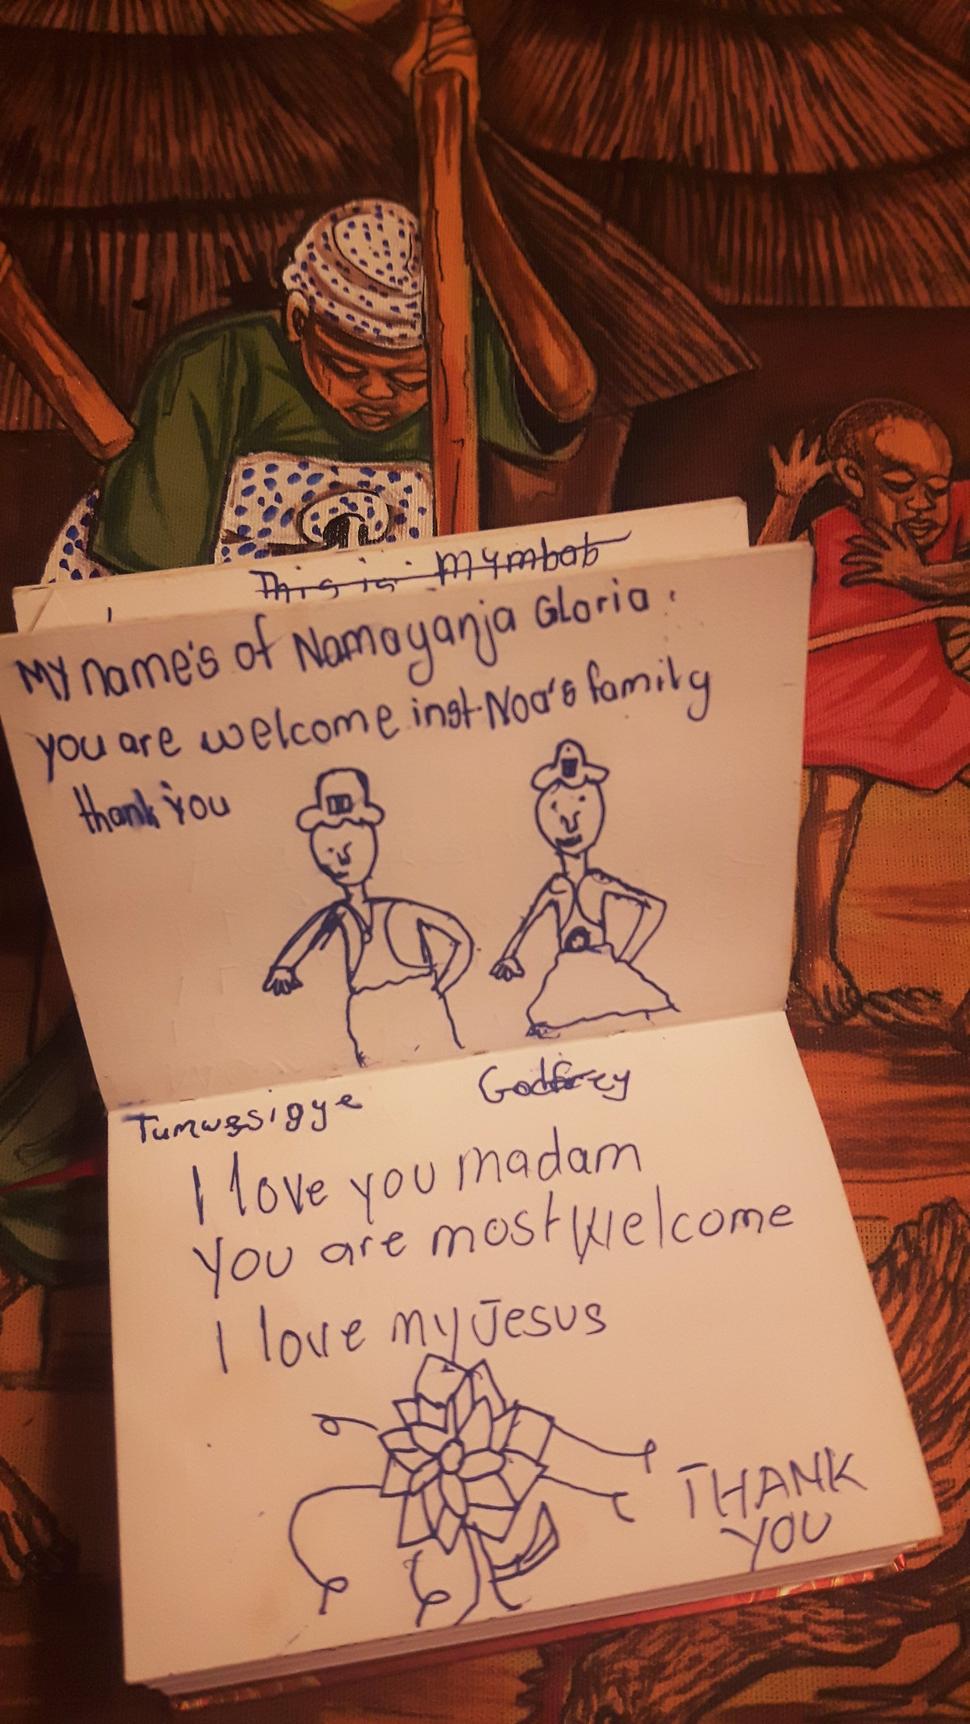 This is: Mymbob
My name's of Namayanja Gloria.
you are welcome inst Noa's family
thank you
Tumwesigye Godfrey
I love you madam
You are most Welcome
I love my Jesus
THANK
YOU